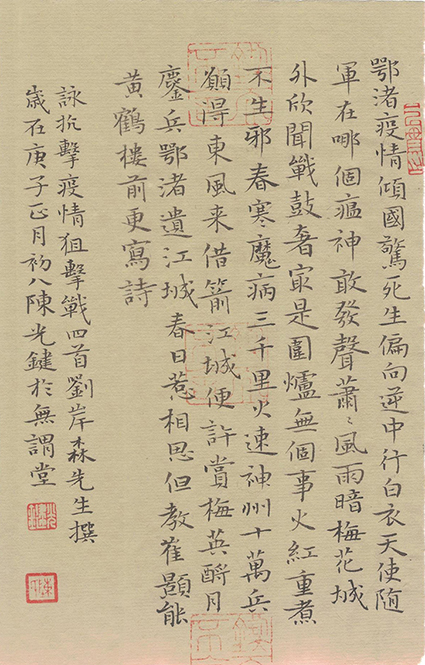 鄂渚疫情傾國驚死生偏向逆中行白衣天使随
軍在哪個瘟神敢發聲蕭〻風雨暗梅花城
外欣聞戰鼓奢㝡是圍爐無個事火紅重煮
不生邪春寒魔病三千里火速神州十萬兵
願得東風来借箭江城便許賞梅英酹月
鏖兵鄂渚遺江城春日惹相思但教崔顥能
黄鶴樓前更寫詩
詠抗擊疫情狙擊戰四首劉岸森先生撰
歲在庚子正月初八陳光鍵於無謂堂